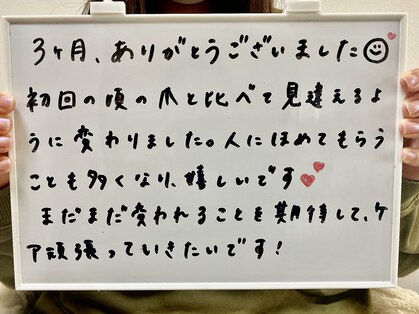 3ヶ月、ありがとうございました
初回の頃の爪と比べて見違えるよ
うに変わりました。人にほめてもらう
ことも多くなり、嬉しいです
まだまだ変われることを期待して、ケ
ア頑張っていきたいです!